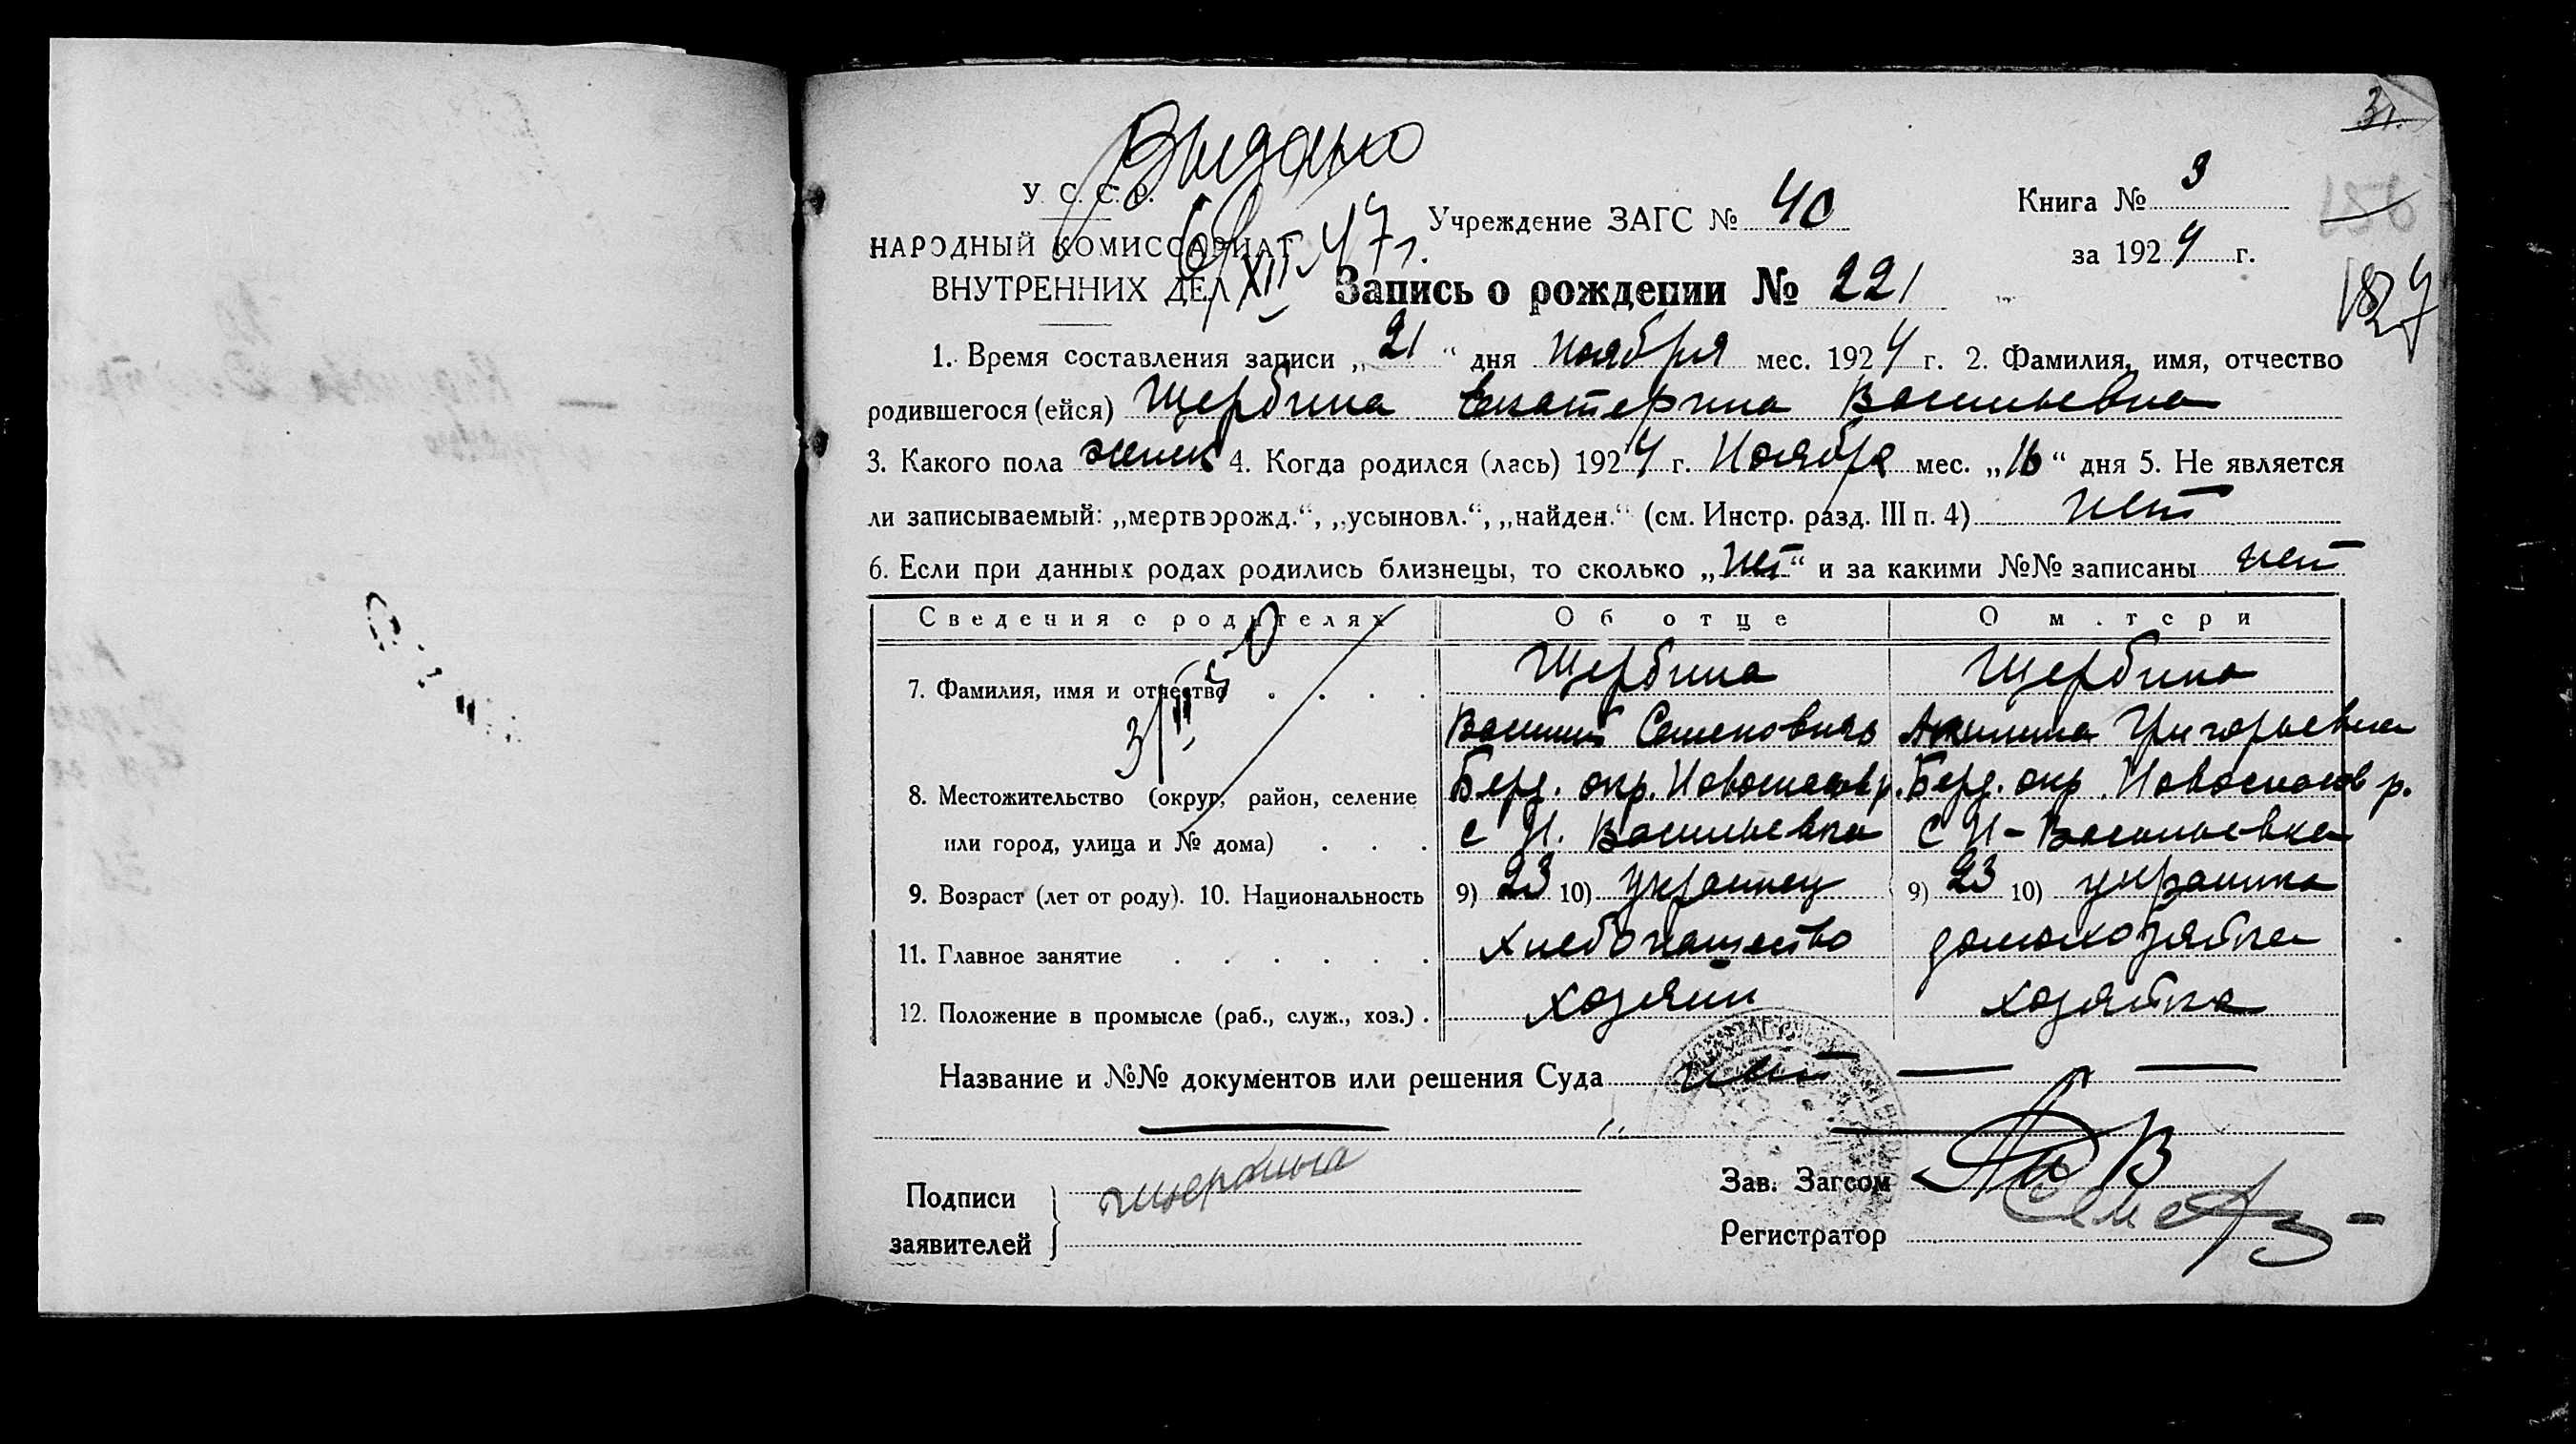 31.
Выдано
У. С. С. Р.
НАРОДНЫЙ КОМИССАРИАТ
ВНУТРЕННИХ ДЕЛ
XII 47 г.
Учреждение ЗАГС № 40
Книга № 3
за 1924 г.
156
Запись о рождении № 221
1. Время составления записи „21“ дня Ноября мес. 1924 г. 2. Фамилия, имя, отчество
родившегося (ейся) Щербина Екатерина Васильевна
3. Какого пола женск 4. Когда родился (лась) 1924 г. Ноября мес. „16“ дня 5. Не является
ли записываемый: „мертворожд.“, „усыновл.“, „найден.“ (см. Инстр. разд. III п. 4) нет
6. Если при данных родах родились близнецы, то сколько „нет“ и за какими №№ записаны нет
Сведения о родителях Об отце О матери
7. Фамилия, имя и отчество . . . . Щербина Щербина
Василий Семенович Акилина Григорьевна
8. Местожительство (округ, район, селение Берд. окр. Новоспасов р. Берд. окр. Новоспасов р.
или город, улица и № дома) . . . с Н. Васильевка с Н-Васильевка
9. Возраст (лет от роду). 10. Национальность 9) 23 10) украинец 9) 23 10) украинка
11. Главное занятие . . . . . . хлебопашество домохозяйка
12. Положение в промысле (раб., служ., хоз.) . хозяин хозяйка
Название и №№ документов или решения Суда нет
Подписи
заявителей
Щербина
Зав. Загсом
Регистратор